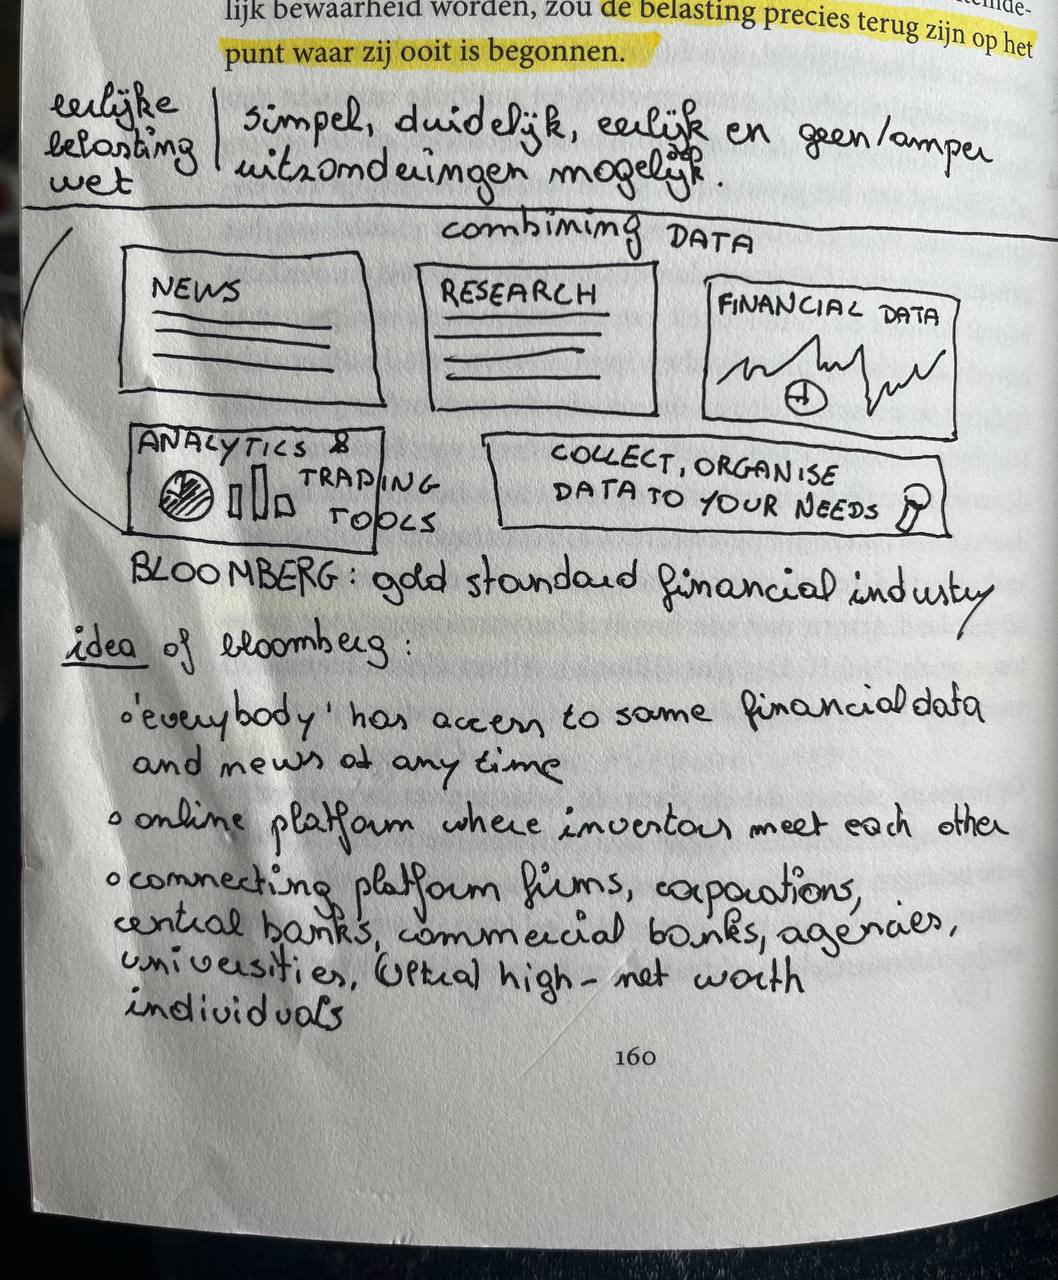 lijk bewaarheid worden, zou de belasting precies terug zijn op het
punt waar zij ooit is begonnen.
eerlijke
belasting
wet
simpel, duidelijk, eerlijk en geen/amper
uitzonderingen mogelijk.
combining DATA
NEWS
RESEARCH
FINANCIAL DATA
ANALYTICS &
TRADING
TOOLS
COLLECT, ORGANISE
DATA TO YOUR NEEDS
BLOOMBERG: gold standard financial industry
idea of bloomberg:
'everybody' has access to same financial data
and news at any time
online platform where investors meet each other
connecting platform firms, corporations,
central banks, commercial banks, agencies,
universities, (ultra) high-net worth
individuals
160